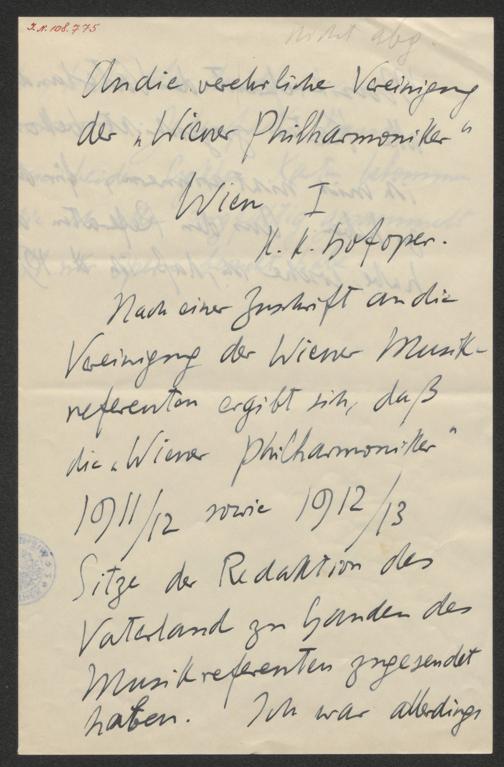 I.N. 108.775
nicht abg.
An die verehrliche Vereinigung
der „Wiener Philharmoniker“
Wien I
K. K. Hofoper.
Nach einer Zuschrift an die
Vereinigung der Wiener Musik-
referenten ergibt sich, daß
die „Wiener Philharmoniker“
1911/12 sowie 1912/13
Sitze der Redaktion des
Vaterland zu Handen des
Musikreferenten zugesendet
haben. Ich war allerdings